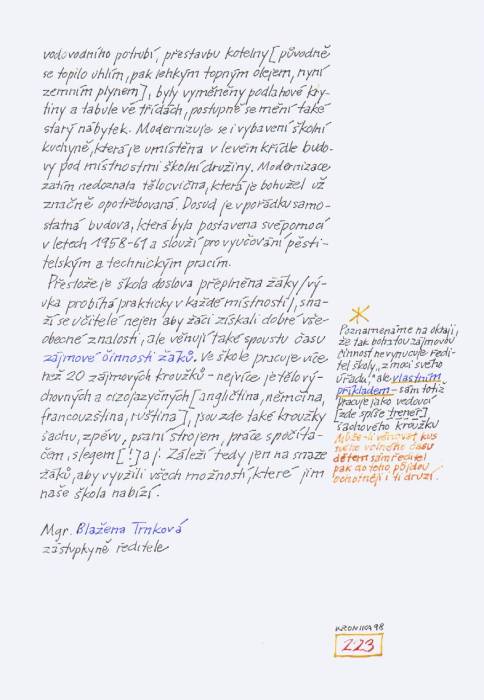 vodovodního potrubí, přestavbu kotelny [původně
se topilo uhlím, pak lehkým topným olejem, nyní
zemním plynem], byly vyměněny podlahové kry-
tiny a tabule ve třídách, postupně se mění také
starý nábytek. Modernizuje se i vybavení školní
kuchyně, která je umístěna v levém křídle budo-
vy pod místnostmi školní družiny. Modernizace
zatím nedoznala tělocvična, která je bohužel už
značně opotřebovaná. Dosud je v pořádku samo-
statná budova, která byla postavena svépomocí
v letech 1958-61 a slouží pro vyučování pěsti-
telským a technickým pracím.
Přestože je škola doslova přeplněna žáky /vý-
uka probíhá prakticky v každé místnosti/, sna-
ží se učitelé nejen aby žáci získali dobré vše-
obecné znalosti, ale věnují také spoustu času
zájmové činnosti žáků. Ve škole pracuje více
než 20 zájmových kroužků - nejvíce je tělový-
chovných a cizojazyčných [angličtina, němčina,
francouzština, ruština], jsou zde také kroužky
šachu, zpěvu, psaní strojem, práce s počíta-
čem, šlegem [!] aj. Záleží tedy jen na snaze
žáků, aby využili všech možností, které jim
naše škola nabízí.
Mgr. Blažena Trnková
zástupkyně ředitele
Poznamenáme na okraji,
že tak bohatou zájmovou
činnost nevynucuje ředi-
tel školy "z moci svého
úřadu," ale vlastním
příkladem - sám totiž
pracuje jako vedoucí
[zde spíše trenér]
šachového kroužku
Může-li věnovat kus
svého volného času
dětem sám ředitel
pak do toho půjdou
ochotněji i ti druzí.
KRONIKA 98
223